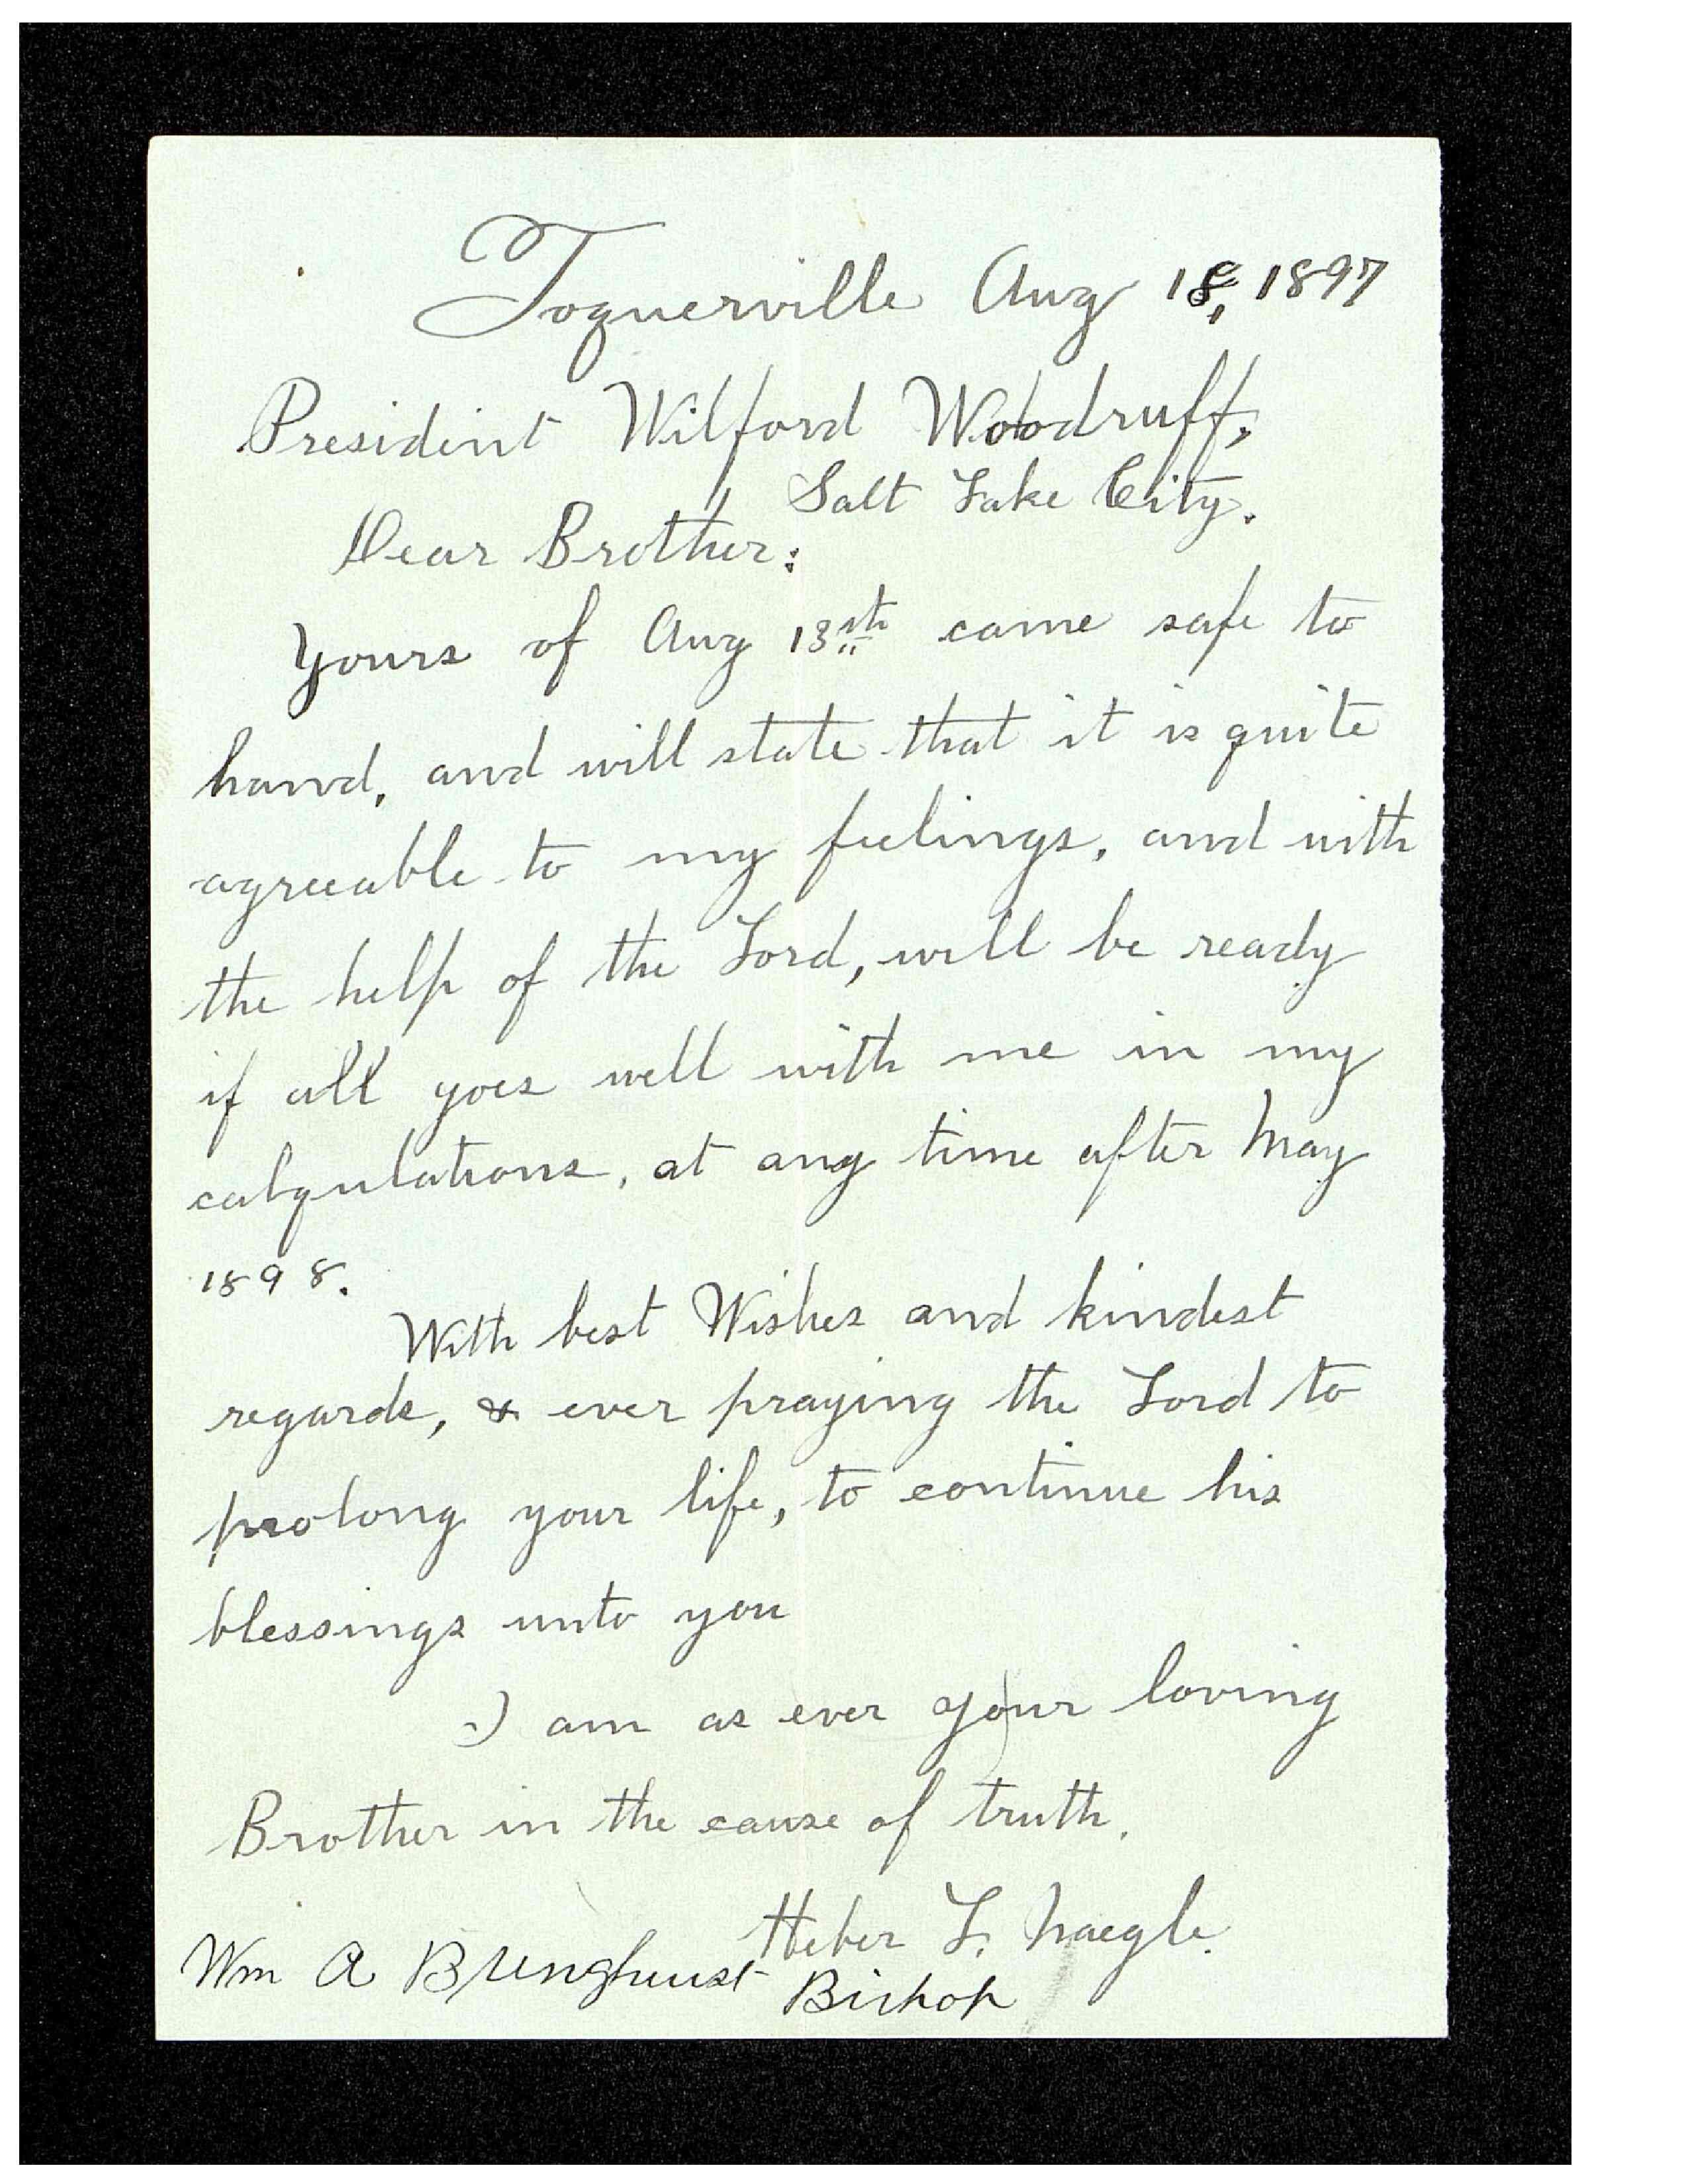 Toquerville Aug 18, 1897
President Wilford Woodruff,
Salt Lake City.
Dear Brother:
Yours of Aug 13th came safe to
hand, and will state that it is quite
agreeable to my feelings, and with
the help of the Lord, will be ready
if all goes well with me in my
calqulations, at any time after May
1898.
With best Wishes and kindest
regards, & ever praying the Lord to
prolong your life, to continue his
blessings unto you
I am as ever your loving
Brother in the cause of truth.
Heber L. Naegle.
Wm A Bringhurst Bishop